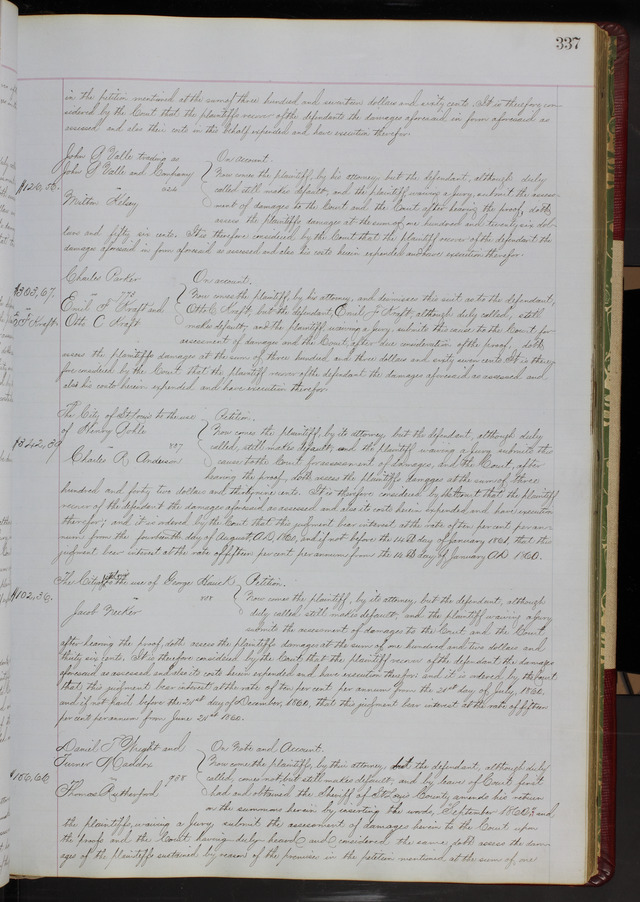 337
in the petition mentioned at the sum of three hundred and seventeen dollars and sixty cents. It is therefore con-
sidered by the Court that the plaintiffs recover of the defendants the damages aforesaid in form aforesaid as
assessed and also their costs in this behalf expended and have execution therefor.
John G Valle trading as
John G Valle and Company
$126,56.
Milton Kelsey
On account.
Now comes the plaintiff, by his attorney but the defendant, although duly
called still makes default, and the plaintiff waiving a jury, submit the assess-
ment of damages to the Court and the Court after hearing the proof, doth
assess the plaintiffs damages at the sum of one hundred and twenty six dol-
lars and fifty six cents. It is therefore considered by the Court that the plaintiff recover of the defendant the
damages aforesaid in form aforesaid as assessed and also his costs herein expended and have execution therefor.
Charles Parker
$303,67.
Emil F Kraft and
Otto C Kraft
On account.
Now comes the plaintiff, by his attorney, and dismisses this suit as to the defendant,
Otto C Kraft, but the defendant, Emil F Kraft, although duly called, still
makes default, and the plaintiff, waiving a jury, submits the cause to the Court for
assessment of damages and the Court, after due consideration of the proof, doth
assess the plaintiffs damages at the sum of three hundred and three dollars and sixty seven cents. It is there-
fore considered by the Court that the plaintiff recover of the defendant the damages aforesaid as assessed and
also his costs herein expended and have execution therefor.
The City of St Louis to the use
of Henry
$342,39
Charles R Anderson
Petition.
Now comes the plaintiff, by its attorney, but the defendant, although duly
called, still makes default, and the plaintiff waiving a jury submits the
cause to the Court for assessment of damages, and the Court, after
hearing the proof, doth assess the plaintiffs damages at the sum of three
hundred and forty two dollars and thirty nine cents. It is therefore considered by the Court that the plaintiff
recover of the defendant the damages aforesaid as assessed and also its costs herein expended and have execution
therefor; and it is ordered by the Court that the judgment bear interest at the rate of ten per cent per an-
num from the fourteenth day of August AD 1860, and if not before the 14th day of January 1861, that the
judgment bear interest at the rate of fifteen per cent per annum from the 14th day of January AD 1860.
The City to the use of George
$102,36.
808
Jacob Necker
Petition.
Now comes the plaintiff, by its attorney, but the defendant, although
duly called still makes default, and the plaintiff waiving a jury
submits the assessment of damages to the Court and the Court
after hearing the proof, doth assess the plaintiffs damages at the sum of one hundred and two dollars and
thirty six cents. It is therefore considered by the Court that the plaintiff recover of the defendant the damages
aforesaid as assessed and also its costs herein expended and have execution therefor: and it is ordered by the Court
that this judgment bear interest at the rate of ten per cent per annum from the 21st day of July, 1860,
and if not paid before the 21st day of December, 1860, that the judgment bear interest at the rate of fifteen
per cent per annum from June 21st 1860.
Daniel T Wright and
Turner Maddox
Thomas Rutherford
On Note and Account.
Now come the plaintiffs, by their attorney, but the defendant, although duly
called, come not but still makes default, and by leave of Court first
had and obtained the Sheriff of St Louis County amends his return
on the summons herein by inserting the words, September 1860; and
the plaintiffs, waiving a jury, submit the assessment of damages herein to the Court upon
the proofs and the Court having duly heard and considered the same doth assess the dam-
ages of the plaintiffs sustained by reason of the premises in the petition mentioned at the sum of, one